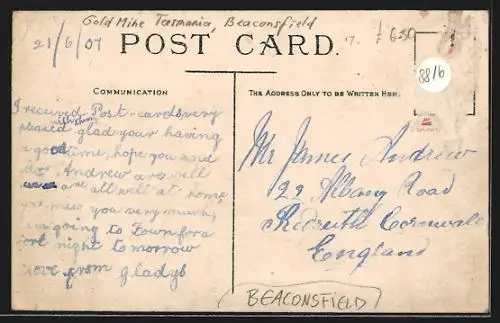 Gold Mine Tasmania, Beaconsfield
21/6/07
POST CARD.
17.
£ 6.50
88/6
COMMUNICATION
THE ADDRESS ONLY TO BE WRITTEN HERE.
I received Post-cards very
pleased with them glad your having
a good time, hope you and
Mrs Andrew are well
are all well at home
miss you very much
am going to Town for a
fort night tomorrow
love from gladys
Mr James Andrew
22 Albany Road
Redruth Cornwall
England
BEACONSFIELD